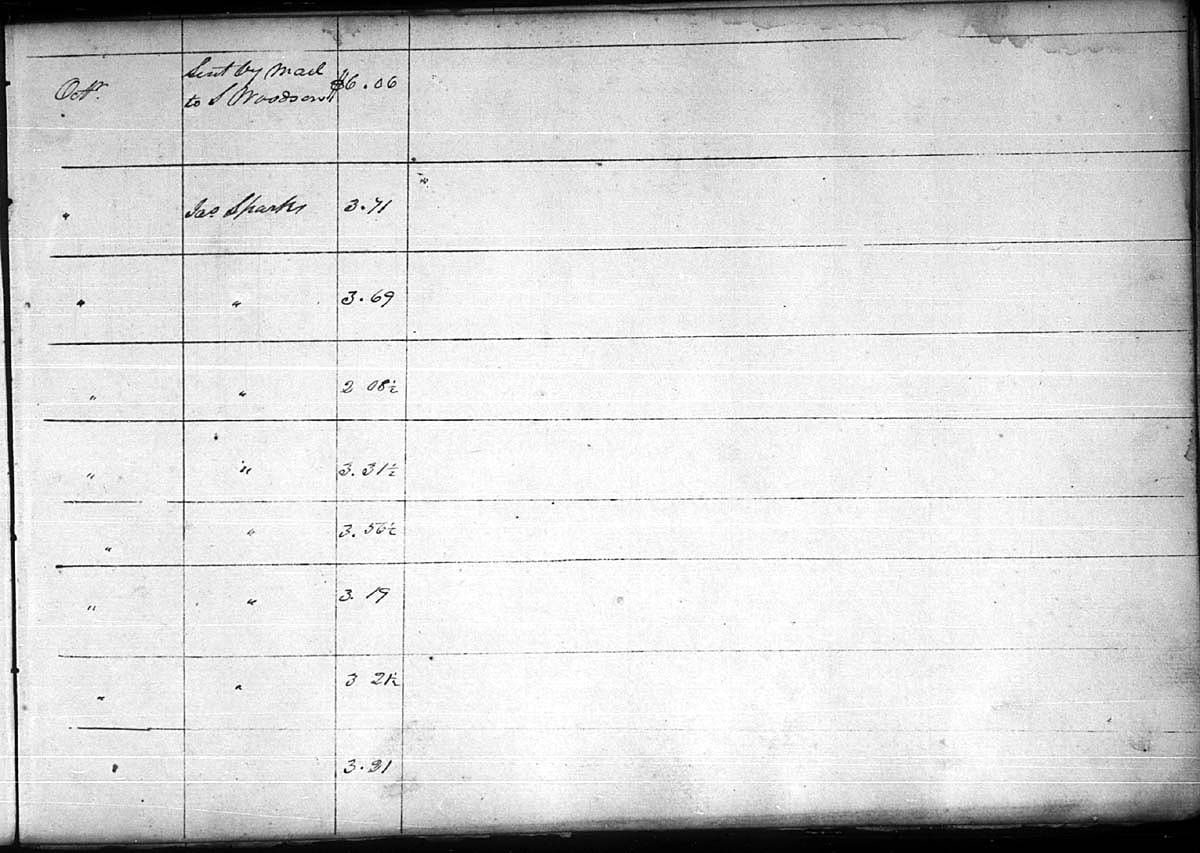 Octr. Sent by Mail $6.06
to S Woodson
" Jas Sparks 3.71
" " 3.69
" " 2 08½
" " 3.31½
" " 3.56½
" " 3.19
" " 3 21½
" 3.31